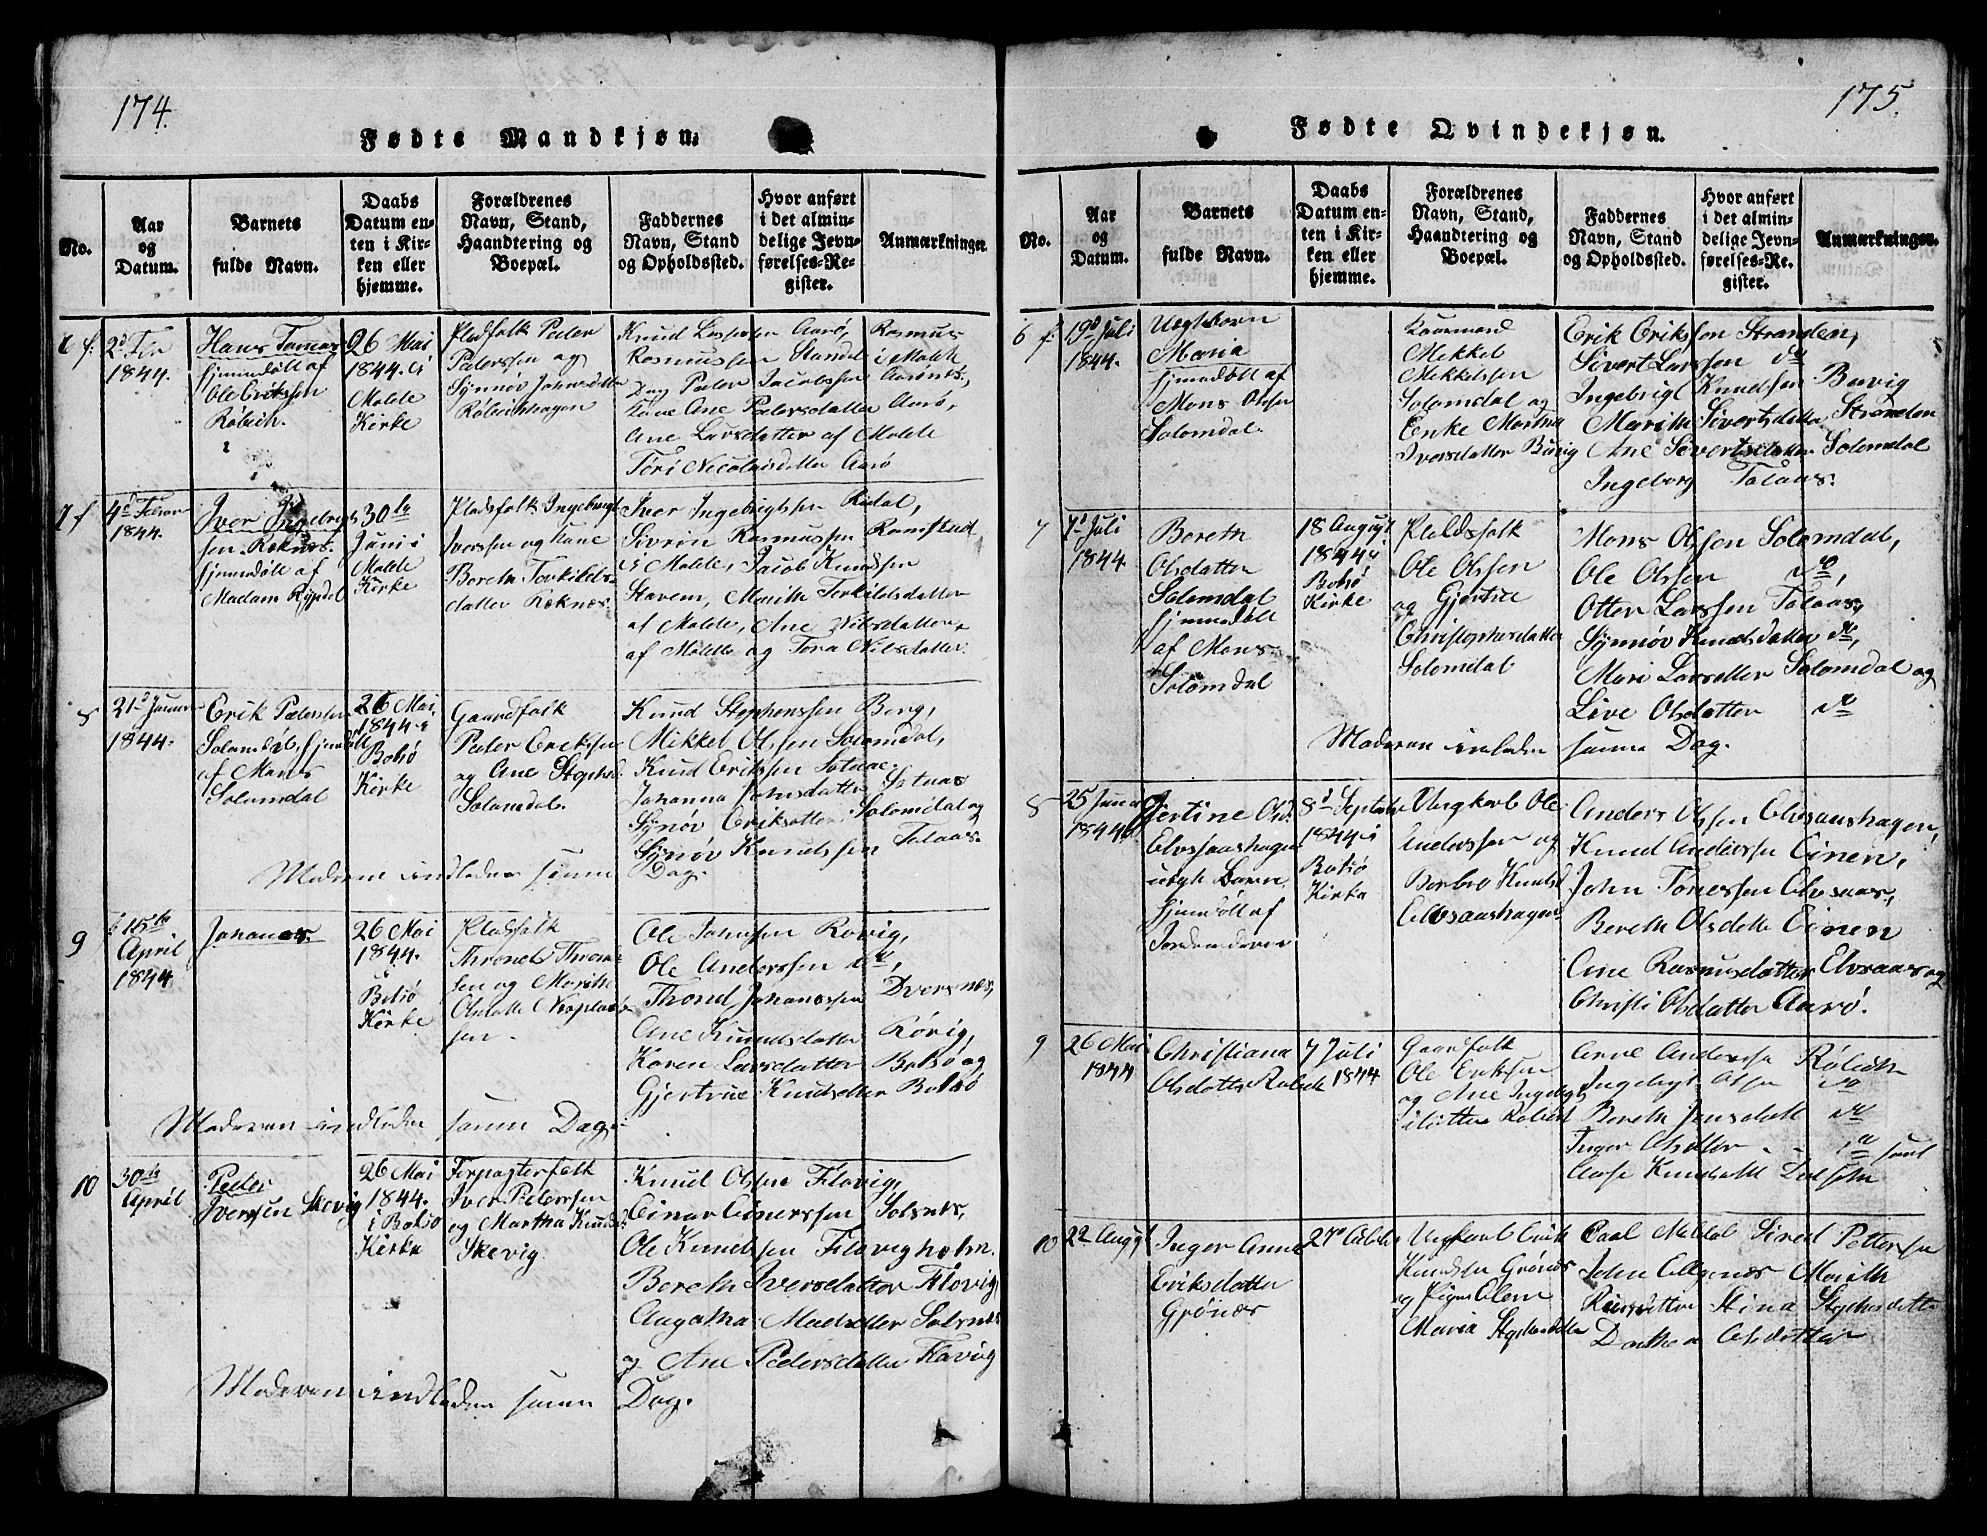 174.
Fødte Mandkjøn.
No.
Aar
og
Datum.
Barnets
fulde Navn.
Daabs
Datum en-
ten i Kir-
ken eller
hjemme.
Forældrenes
Navn, Stand,
Haandtering og
Boepæl.
Faddernes
Navn, Stand
og Opholdssted.
Hvor anført
i det almin-
delige Jevn-
førelses-Re-
gister.
Anmærkninger.
1844.
Hans
hjemdøbt af
Ole Eriksen
Røbich.
26 Mai
1844. i
Molde
Kirke
Pladsfolk Peder
Pederssen og
Synnøv Johnsdatter
Røbichhagen
Knud Aarø, Rasmus
Rasmussen Standal i Molde
Peder Jacobssen Aarønes,
Ane Pedersdatter Aarø,
Ane Larsdatter af Molde
Tøri Nicolaisdatter Aarø
1844.
Iver Ingebrigts
sen Reknes.
hjemdøbt af
Madam Rypdal
30te
Juni i
Molde
Kirke
Pladsfolk Ingebrigt
Iverssen og Kone
Bereth Torkilds-
datter Reknes.
Iver Ingebrigtsen Rødal,
Sivren Rasmussen Ramstad
i Molde, Jacob Knudssen
Stavem, Marith Torkildsdatter
af Molde, Ane Nilsdatter
af Molde og Tora Nilsdatter.
8
21d Januar
1844.
Erik Pederssen
Solomdal, hjemdøbt
af Mons
Solomdal
26 Mai
1844 i
Bolsø
Kirke
Gaardfolk
Peder Erikssen
og Ane Stephsd.
Solomdal.
Knud Stephenssen Berg,
Mikkel Olssen Solomdal,
Knud Erikssen Sotnæ.
Johanna Johnsdatter Sotnæs
Synøv Eriksdatter Solomdal og
Synøv Knudssen Talaas.
Moderen indleden samme Dag.
9
15de
April
1844
Johannes.
26 Mai
1844.
i
Bolsø
Kirke
Pladsfolk
Thrond
sen og Marith
Olsdatter
sen.
Ole Johnsen Røvig,
Ole Anderssen do,
Thrond Johanessen Dversnes,
Ane Knudsdatter Rørvig,
Karen Larsdatter Bolsø og
Gjertrue Knudsdatter Bolsø
Moderen indleden samme Dag.
10
30te
April
Peder
Iverssen Skevig
26 Mai
1844.
i Bolsø
Kirke
Forpagterfolk
Iver Pederssen
og Martha Knudsd.
Skevig.
Knud Olssen Flovig,
Einar Einerssen Solsnes,
Ole Knudssen Flovigholm.
Bereth Iversdatter Flovig
Augatha Madsdatter Solsnes
og Ane Pedersdatter Flovig
Moderen indleden samme Dag.
175.
Fødte Qvindekjøn.
No.
Aar
og
Datum.
Barnets
fulde Navn.
Daabs
Datum en-
ten i Kir-
ken eller
hjemme.
Forældrenes
Navn, Stand,
Haandtering og
Boepæl.
Faddernes
Navn, Stand
og Opholdssted.
Hvor anført
i det almin-
delige Jevn-
førelses-Re-
gister.
Anmærkninger.
6
19d Juli
1844.
Uægteborn
Maria
hjemdøbt af
Mons Olsen
Solomdal.
Mekkel
Mekkelssen
Solomdal og
Enke Martha
Iversdatter
Erik Erikssen Stranden,
Sivert Larssen do
Ingebrigt Knudssen Buvig
Marith Sivertsdatter Stranden
Ane Sivertsdatter Solomdal
Ingeborg Talaas.
7
7d Juli
1844.
Bereth
Olsdatter
Solomdal
hjemdøbt
af Mons
Solomdal
18 August
1844 i
Bolsø
Kirke
Pladsfolk
Ole Olssen
og Gjertrue
Christophersdatter
Solomdal
Mons Olssen Solomdal,
Ole Olssen do,
Otter Larssen Talaas,
Synnøv Knudsdatter do,
Mari Larsdatter Solomdal og
Live Olsdatter do
Moderen indleden samme Dag.
8
25 Juni
1844
Gjertine Olsd.
Elvsaashagen
uægte Barn
hjemdøbt af
Jordemoderen
8d Septembr
1844 i
Bolsø
Kirke
Ungkarl Ole
Anderssen og
Berbro Knudsd.
Elvsaashagen.
Anders Olssen Elvsaashagen,
Knud Anderssen Einen,
John Tønessen Elvsaas,
Bereth Olsdatter Einen
Ane Rasmusdatter Elvsaas og
Christi Olsdatter Aarø.
9
26 Mai
1844
Christiana
Olsdatter Røbech
7 Juli
1844
Gaardfolk
Ole Erikssen
og Ane Ingebrigts
datter Røbech
Arne Anderssen Røbech
Ingebrigt Olsen do
Bereth Jonsdatter do
Inger Olsdatter do samt
Aase Knudsdatter
10
22 August
Inger Anne
Eriksdatter
Grønæs
Ungkarl Erik
Knudsen Grønes
og Pigen Olene
Maria Stephensdatter
Paal Meldal Siverd Petterssen
John Elgenæs Marith
Stina Stephensdatter
Dorthea Olsdatter